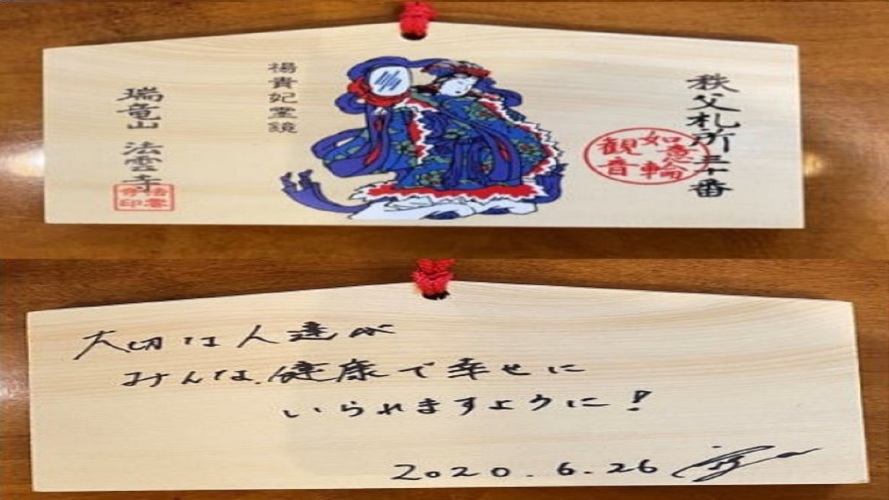 秩父札所三十番
如意輪
観音
楊貴妃霊鏡
瑞竜山 法雲寺
大切な人達が
みんな、健康で幸せに
いられますように!
2020.6.26